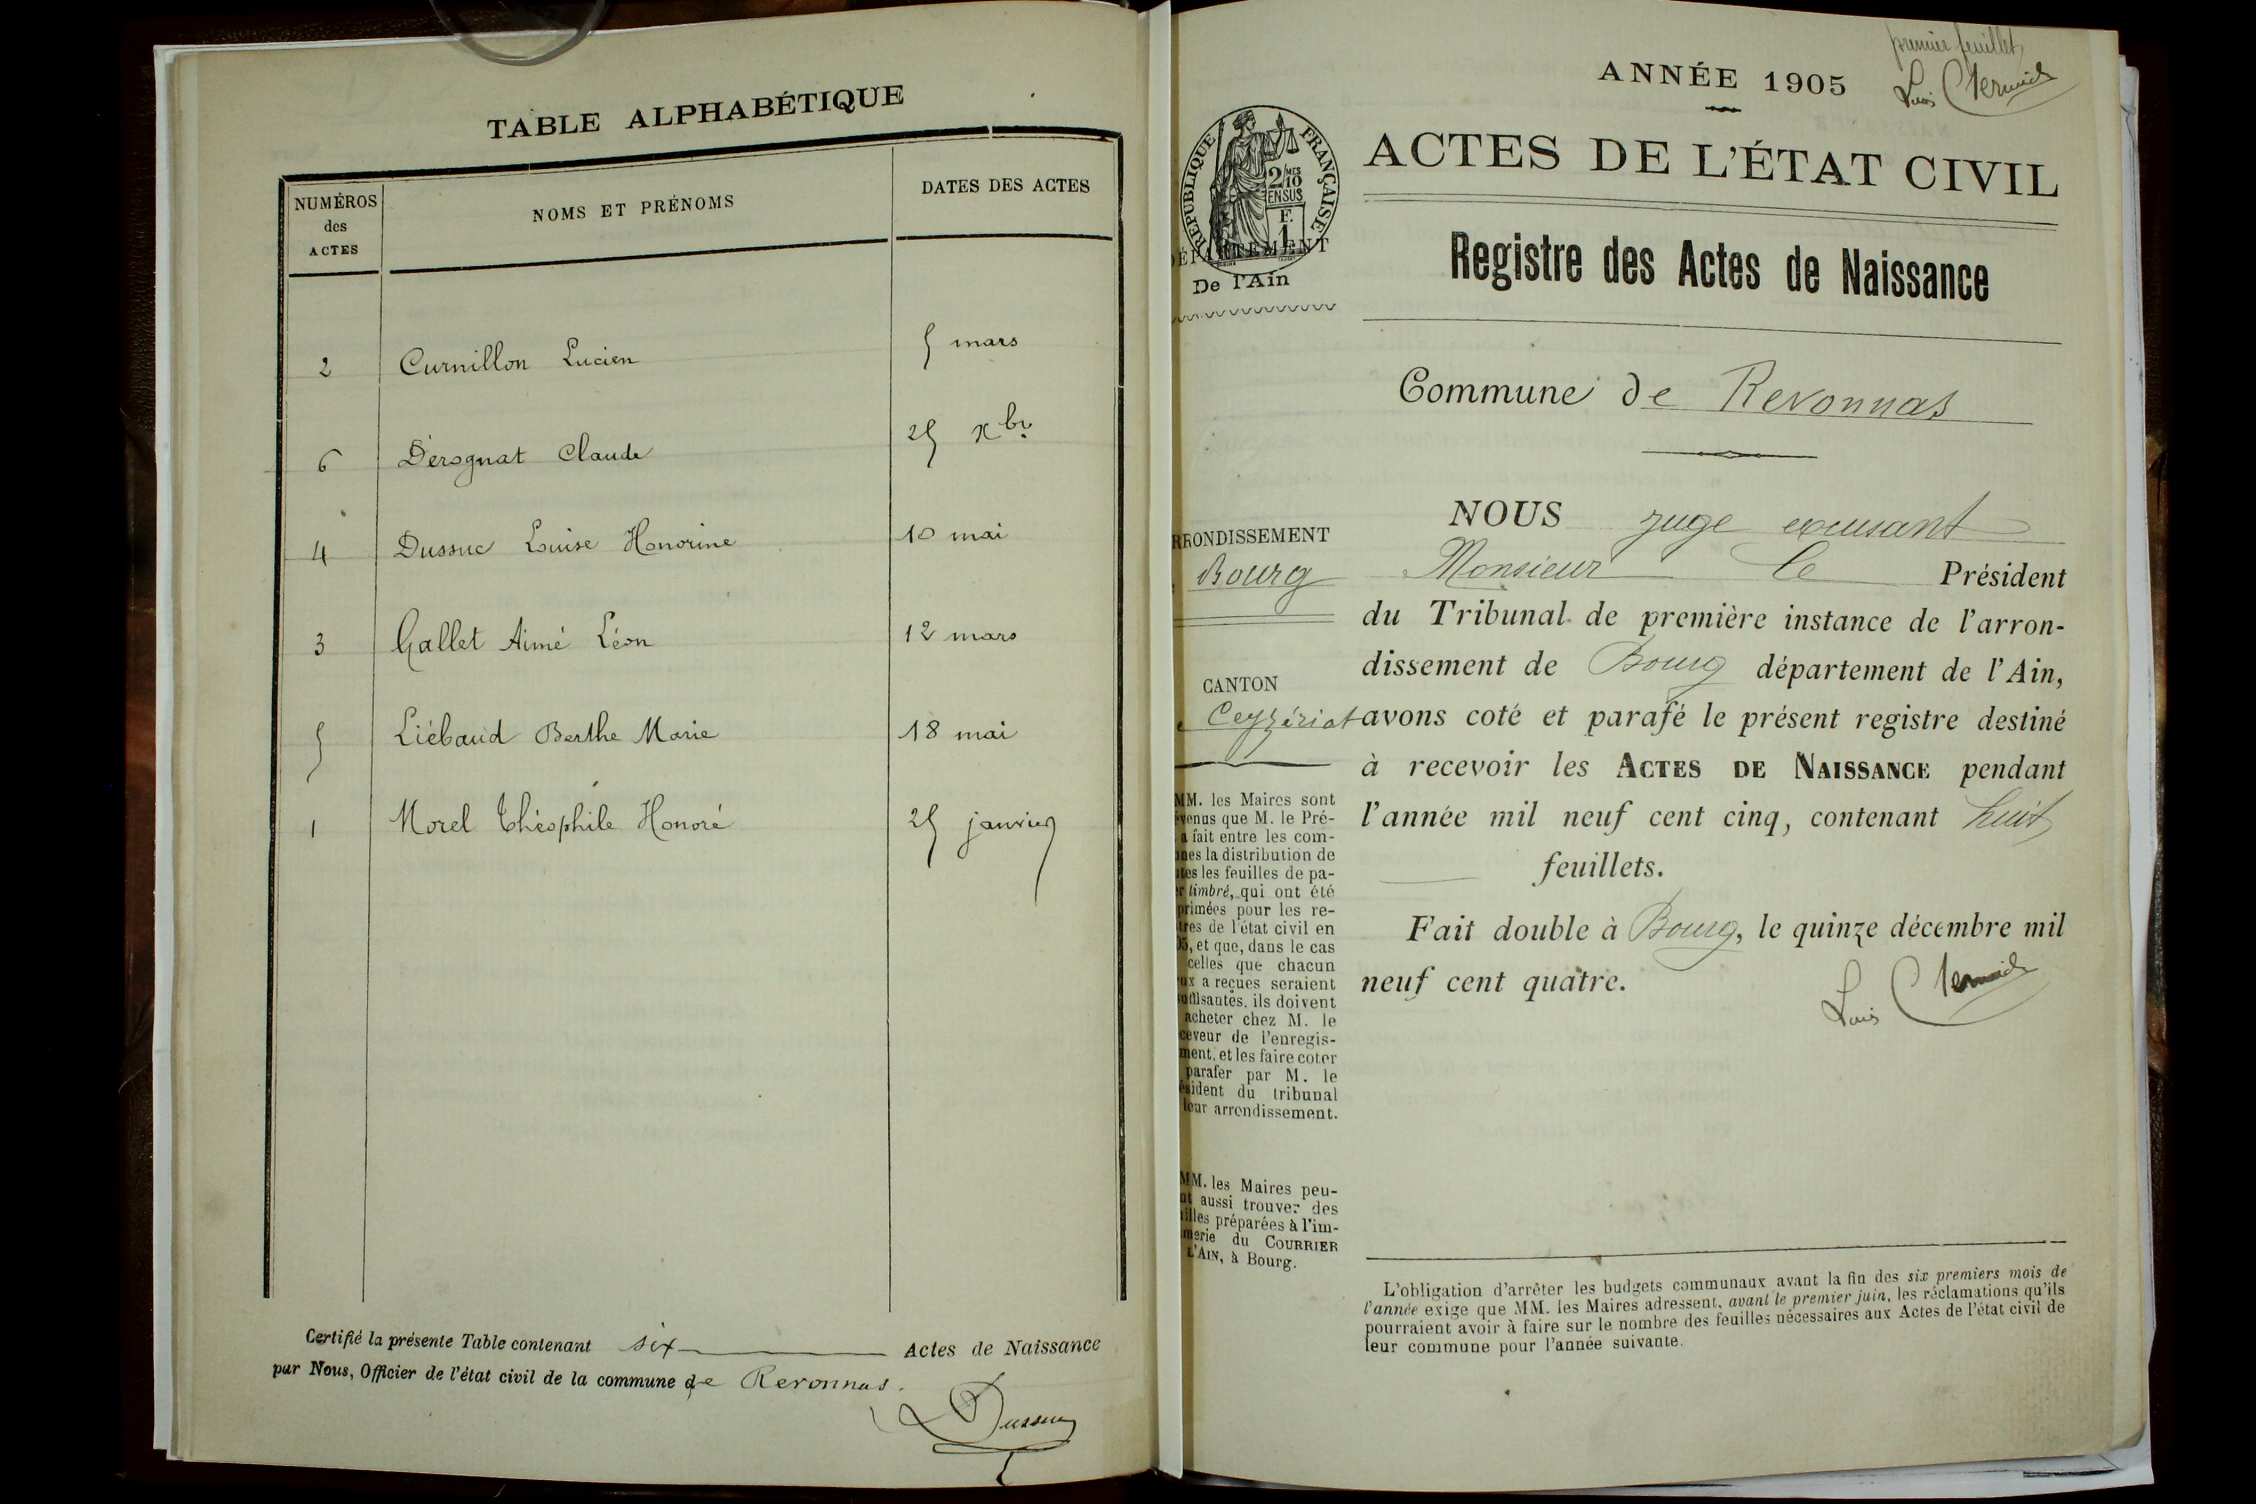 TABLE ALPHABÉTIQUE
NUMÉROS
des
ACTES
NOMS ET PRÉNOMS
DATES DES ACTES
2 Curnillon Lucien 5 mars
6 Dérognat Claude 25 Xbre
4 Dussuc Louise Honorine 10 mai
3 Gallet Aimé Léon 12 mars
5 Liébaud Berthe Marie 18 mai
1 Morel Théophile Honoré 25 janvier
Certifié la présente Table contenant six Actes de Naissance
par Nous, Officier de l'état civil de la commune de Revonnas.
Dussuc
premier feuillet
Louis
ANNÉE 1905
ACTES DE L'ÉTAT CIVIL
RÉPUBLIQUE FRANÇAISE
2/10
MES
EN SUS
F.
1
DÉPARTEMENT
De l'Ain
Registre des Actes de Naissance
Commune de Revonnas
RRONDISSEMENT
Bourg
CANTON
Ceyzériat
MM. les Maires sont
évenus que M. le Pré-
a fait entre les com-
nes la distribution de
tes les feuilles de pa-
r timbré, qui ont été
primées pour les re-
tres de l'état civil en
05, et que, dans le cas
celles que chacun
ux a reçues seraient
uffisantes, ils doivent
acheter chez M. le
ceveur de l'enregis-
ment, et les faire coter
parafer par M. le
ésident du tribunal
leur arrondissement.
MM. les Maires peu-
nt aussi trouver des
illes préparées à l'im-
merie du COURRIER
L'AIN, à Bourg.
NOUS juge excusant
Monsieur le Président
du Tribunal de première instance de l'arron-
dissement de Bourg département de l'Ain,
avons coté et parafé le présent registre destiné
à recevoir les ACTES DE NAISSANCE pendant
l'année mil neuf cent cinq, contenant huit
feuillets.
Fait double à Bourg, le quinze décembre mil
neuf cent quatre.
Louis
L'obligation d'arrêter les budgets communaux avant la fin des six premiers mois de
l'année exige que MM. les Maires adressent, avant le premier juin, les réclamations qu'ils
pourraient avoir à faire sur le nombre des feuilles nécessaires aux Actes de l'état civil de
leur commune pour l'année suivante.